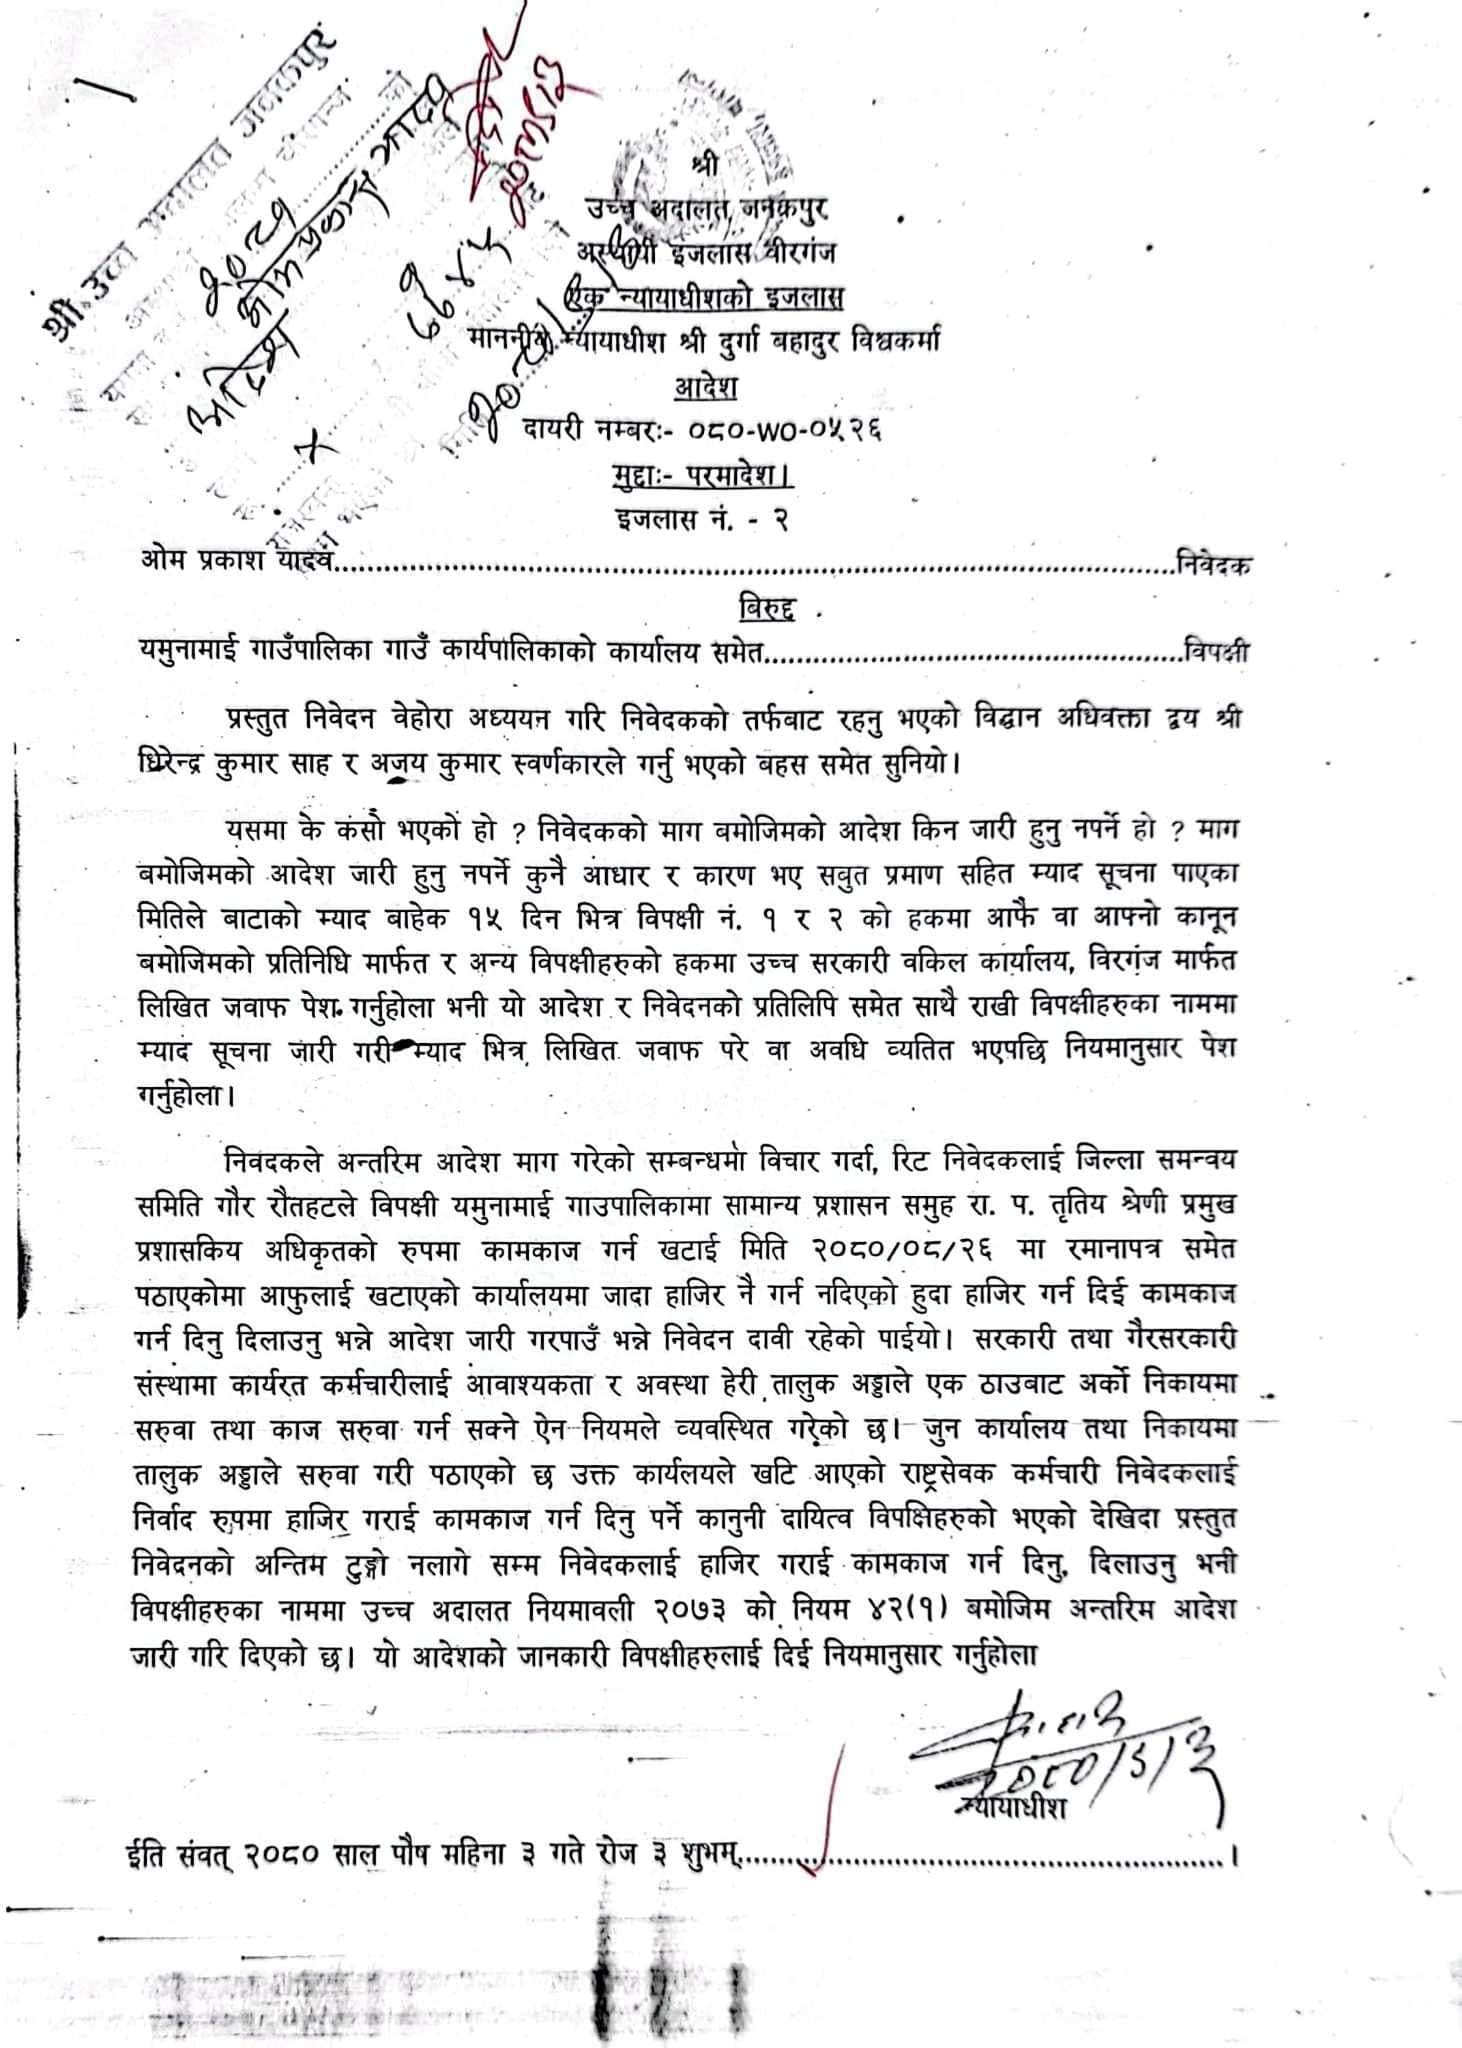 श्री उच्च अदालत जनकपुर
२०८१
ओम प्रकाश यादव
आदेश
श्री
उच्च अदालत जनकपुर
अस्थायी इजलास वीरगंज
एक न्यायाधीशको इजलास
माननीय न्यायाधीश श्री दुर्गा बहादुर विश्वकर्मा
आदेश
दायरी नम्बरः- ०८०-WO-०५२६
मुद्दाः- परमादेश।
इजलास नं. - २
ओम प्रकाश यादव....................निवेदक
बिरुद्द
यमुनामाई गाउँपालिका गाउँ कार्यपालिकाको कार्यालय समेत....................विपक्षी
प्रस्तुत निवेदन वेहोरा अध्ययन गरि निवेदकको तर्फबाट रहनु भएको विद्वान अधिवक्ता द्वय श्री
धिरेन्द्र कुमार साह र अजय कुमार स्वर्णकारले गर्नु भएको बहस समेत सुनियो।
यसमा के कसो भएको हो ? निवेदकको माग बमोजिमको आदेश किन जारी हुनु नपर्ने हो ? माग
बमोजिमको आदेश जारी हुनु नपर्ने कुनै आधार र कारण भए सबुत प्रमाण सहित म्याद सूचना पाएका
मितिले बाटाको म्याद बाहेक १५ दिन भित्र विपक्षी नं. १ र २ को हकमा आफै वा आफ्नो कानून
बमोजिमको प्रतिनिधि मार्फत र अन्य विपक्षीहरुको हकमा उच्च सरकारी वकिल कार्यालय, विरगंज मार्फत
लिखित जवाफ पेश गर्नुहोला भनी यो आदेश र निवेदनको प्रतिलिपि समेत साथै राखी विपक्षीहरुका नाममा
म्याद सूचना जारी गरी म्याद भित्र लिखित जवाफ परे वा अवधि व्यतित भएपछि नियमानुसार पेश
गर्नुहोला।
निवदकले अन्तरिम आदेश माग गरेको सम्बन्धमा विचार गर्दा, रिट निवेदकलाई जिल्ला समन्वय
समिति गौर रौतहटले विपक्षी यमुनामाई गाउपालिकामा सामान्य प्रशासन समुह रा. प. तृतिय श्रेणी प्रमुख
प्रशासकिय अधिकृतको रुपमा कामकाज गर्न खटाई मिति २०८०/०८/२६ मा रमानापत्र समेत
पठाएकोमा आफुलाई खटाएको कार्यालयमा जादा हाजिर नै गर्न नदिएको हुदा हाजिर गर्न दिई कामकाज
गर्न दिनु दिलाउनु भन्ने आदेश जारी गरपाउँ भन्ने निवेदन दावी रहेको पाईयो। सरकारी तथा गैरसरकारी
संस्थामा कार्यरत कर्मचारीलाई आवाश्यकता र अवस्था हेरी तालुक अड्डाले एक ठाउबाट अर्को निकायमा
सरुवा तथा काज सरुवा गर्न सक्ने ऐन नियमले व्यवस्थित गरेको छ। जुन कार्यालय तथा निकायमा
तालुक अड्डाले सरुवा गरी पठाएको छ उक्त कार्यलयले खटि आएको राष्ट्रसेवक कर्मचारी निवेदकलाई
निर्वाद रुपमा हाजिर गराई कामकाज गर्न दिनु पर्ने कानुनी दायित्व विपक्षिहरुको भएको देखिदा प्रस्तुत
निवेदनको अन्तिम टुङ्गो नलागे सम्म निवेदकलाई हाजिर गराई कामकाज गर्न दिनु, दिलाउनु भनी
विपक्षीहरुका नाममा उच्च अदालत नियमावली २०७३ को नियम ४२(१) बमोजिम अन्तरिम आदेश
जारी गरि दिएको छ। यो आदेशको जानकारी विपक्षीहरुलाई दिई नियमानुसार गर्नुहोला
२०८०/९/३
न्यायाधीश
ईति संवत् २०८० साल पौष महिना ३ गते रोज ३ शुभम्....................।